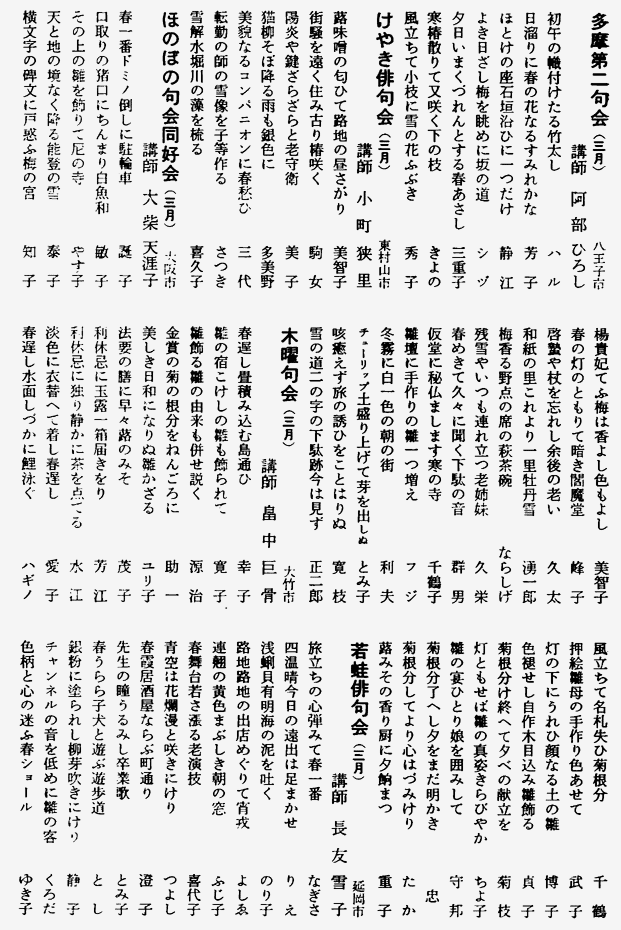 多摩第二句会（三月） 八王子市
講師 阿部 ひろし
初午の幟付けたる竹太し ハル
日溜りに春の花なるすみれかな 芳子
ほとけの座石垣沿ひに一つだけ 静江
よき日ざし梅を眺めに坂の道 シヅ
夕日いまくづれんとする春あさし 三重子
寒椿散りて又咲く下の枝 きよの
風立ちて小枝に雪の花ふぶき 秀子
けやき俳句会（三月） 東村山市
講師 小町 狭里
蕗味噌の匂ひて路地の昼さがり 美智子
街騒を遠く住み古り椿咲く 駒女
陽炎や鍵ざらざらと老守衛 美子
猫柳そぼ降る雨も銀色に 多美野
美貌なるコンパニオンに春愁ひ 三代
転勤の師の雪像を子等作る さつき
雪解水堀川の藻を梳る 喜久子
ほのぼの句会同好会（三月） 大阪市
講師 大柴 天涯子
春一番ドミノ倒しに駐輪車 誕子
口取りの猪口にちんまり白魚和 敏子
その上の雛を飾りて尼の寺 やす子
天と地の境なく降る能登の雪 泰子
横文字の碑文に戸惑ふ梅の宮 知子
楊貴妃てふ梅は香よし色もよし 美智子
春の灯のともりて暗き閻魔堂 峰子
啓蟄や杖を忘れし余後の老い 久太
和紙の里これより一里牡丹雪 湧一郎
梅香る野点の席の萩茶碗 ならしげ
残雪やいつも連れ立つ老姉妹 久栄
春めきて久々に聞く下駄の音 群男
仮堂に秘仏まします寒の寺 千鶴子
雛壇に手作りの雛一つ増え フジ
冬霧に白一色の朝の街 利夫
チューリップ土盛り上げて芽を出しぬ とみ子
咳癒えず旅の誘ひをことはりぬ 寛枝
雪の道二の字の下駄跡今は見ず 正二郎
木曜句会（三月） 大竹市
講師 畠中 巨骨
春遅し畳積み込む島通ひ 幸子
雛の宿こけしの雛も飾られて 寛子
雛飾る雛の由来も併せ説く 源治
金賞の菊の根分をねんごろに 助一
美しき日和になりぬ雛かざる ユリ子
法要の膳に早々蕗のみそ 茂子
利休忌に玉露一箱届きをり 芳江
利休忌に独り静かに茶を点てる 水江
淡色に衣替へて着し春遅し 愛子
春遅し水面しづかに鯉泳ぐ ハギノ
風立ちて名札失ひ菊根分 千鶴
押絵雛母の手作り色あせて 武子
灯の下にうれひ顔なる土の雛 博子
色褪せし自作木目込み雛飾る 貞子
菊根分け終へて夕べの献立を 菊枝
灯ともせば雛の真姿きらびやか ちよ子
雛の宴ひとり娘を囲みして 守邦
菊根分了へし夕をまだ明かき 忠
菊根分してより心はづみけり たか
蕗みその香り厨に夕餉まつ 重子
若蛙俳句会（三月） 延岡市
講師 長友 雪子
旅立ちの心弾みて春一番 なぎさ
四温晴今日の遠出は足まかせ りえ
浅蜊貝有明海の泥を吐く のり子
路地路地の出店めぐりて宵戎 よしゑ
連翹の黄色まぶしき朝の窓 ふじ子
春舞台若さ漲る老演技 喜代子
青空は花爛漫と咲きにけり つよし
春霞居酒屋ならぶ町通り 澄子
先生の瞳うるみし卒業歌 とみ子
春うらら子犬と遊ぶ遊歩道 とし
銀粉に塗られし柳芽吹きにけり 静子
チャンネルの音を低めに雛の客 くろだ
色柄と心の迷ふ春ショール ゆき子